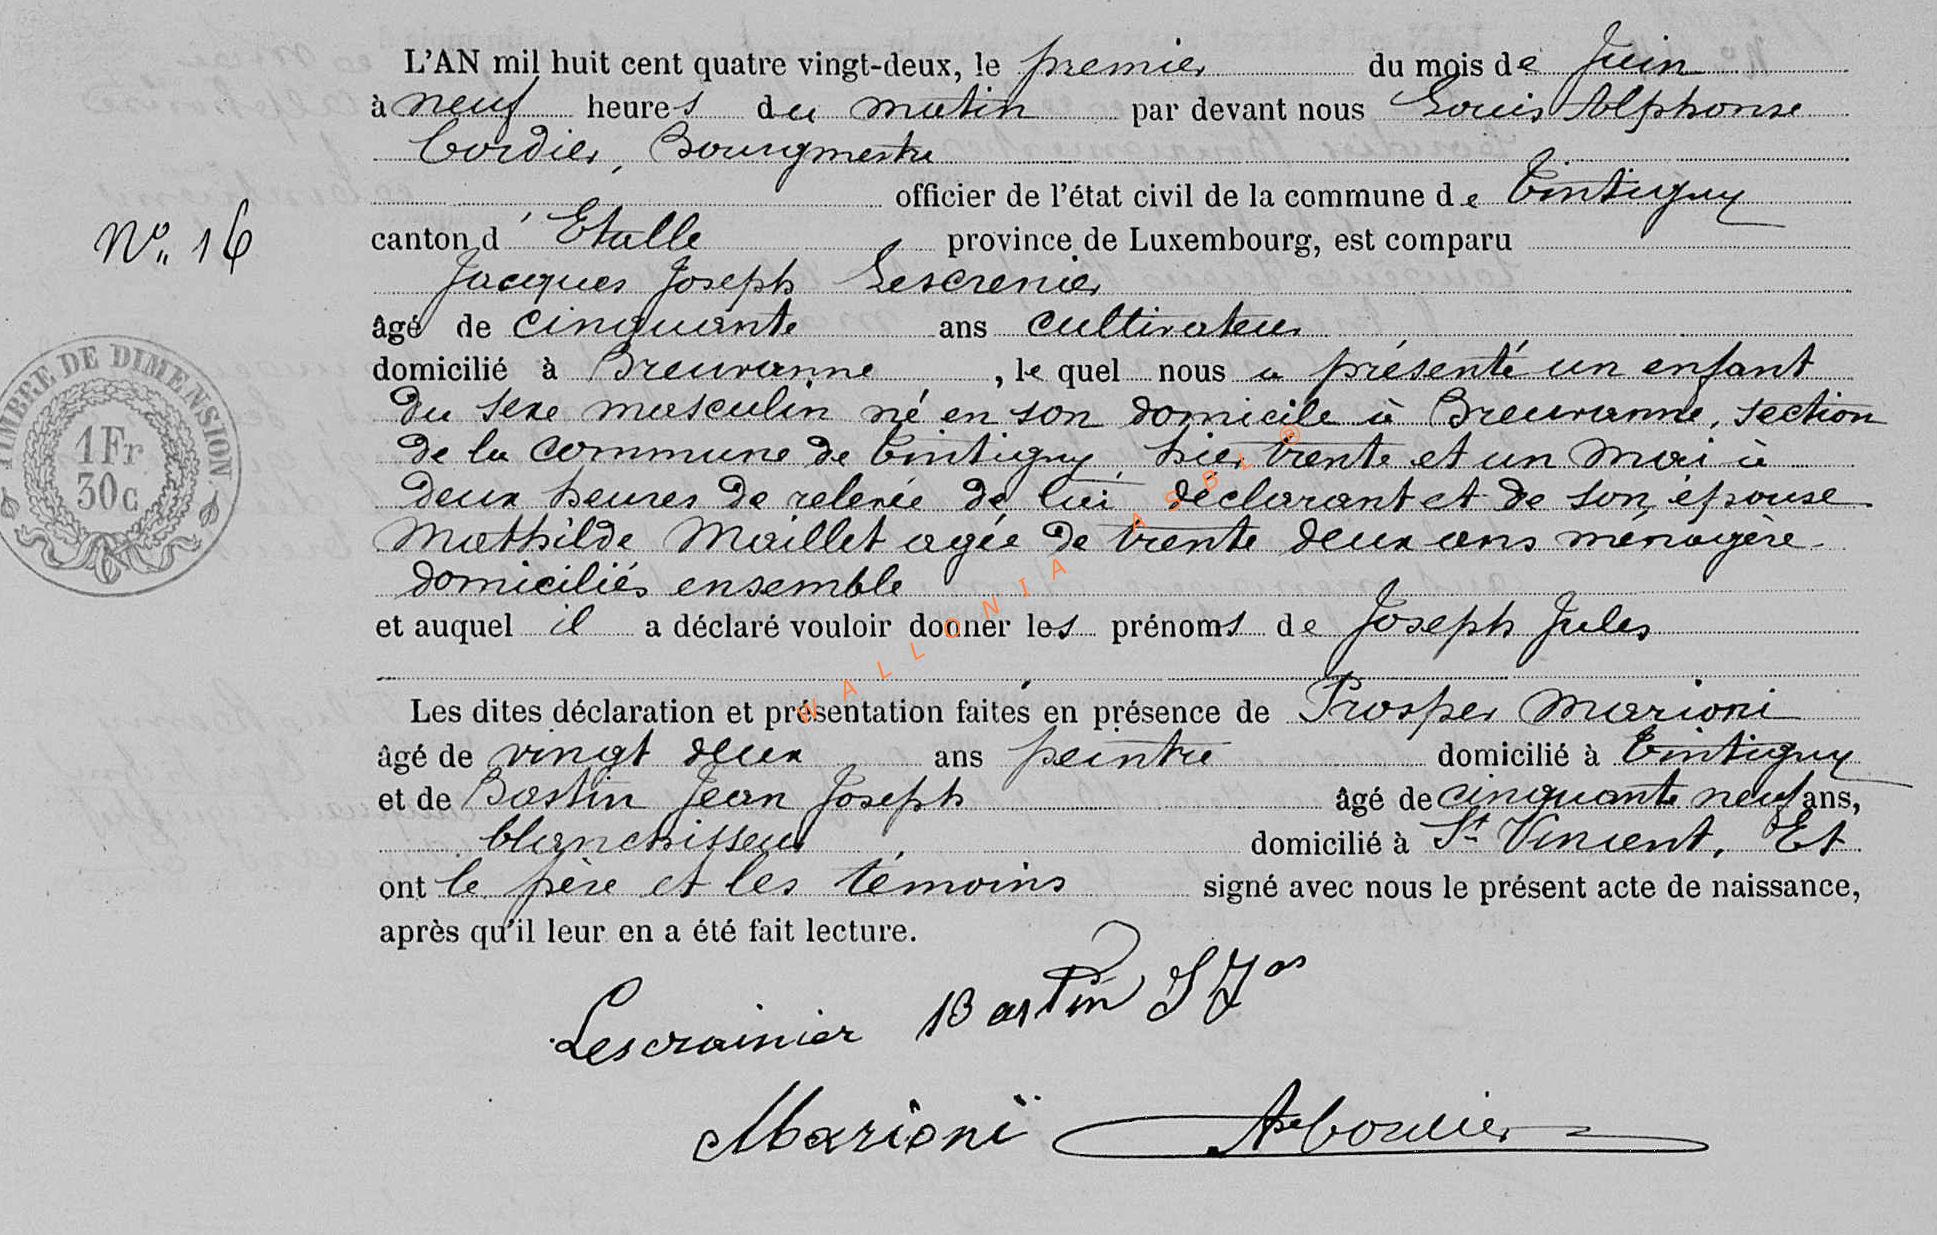 L'AN mil huit cent quatre vingt-deux, le premier du mois de Juin
à neuf heures du matin par devant nous Louis Alphonse
Cordier, Bourgmestre
officier de l'état civil de la commune de Tintigny
canton d'Etalle province de Luxembourg, est comparu
N° 16
Jacques Joseph Lescrenier
âgé de cinquante ans cultivateur
domicilié à Breuvanne, le quel nous a présenté un enfant
du sexe masculin né en son domicile à Breuvanne, section
de la commune de Tintigny, hier trente et un Mai à
deux heures de relevée de lui déclarant et de son épouse
Mathilde Maillet agée de trente deux ans ménagère
domiciliés ensemble
et auquel il a déclaré vouloir donner les prénoms de Joseph Jules
Les dites déclaration et présentation faites en présence de Prosper Marioni
âgé de vingt deux ans peintre domicilié à Tintigny
et de Bastin Jean Joseph âgé de cinquante neuf ans,
blanchisseur domicilié à St Vincent. Et
ont le père et les témoins signé avec nous le présent acte de naissance,
après qu'il leur en a été fait lecture.
Lescrainier Bastin J Jos
Marioni ACordier
TIMBRE DE DIMENSION
1 Fr
30c
WALLONIA ASBL ®